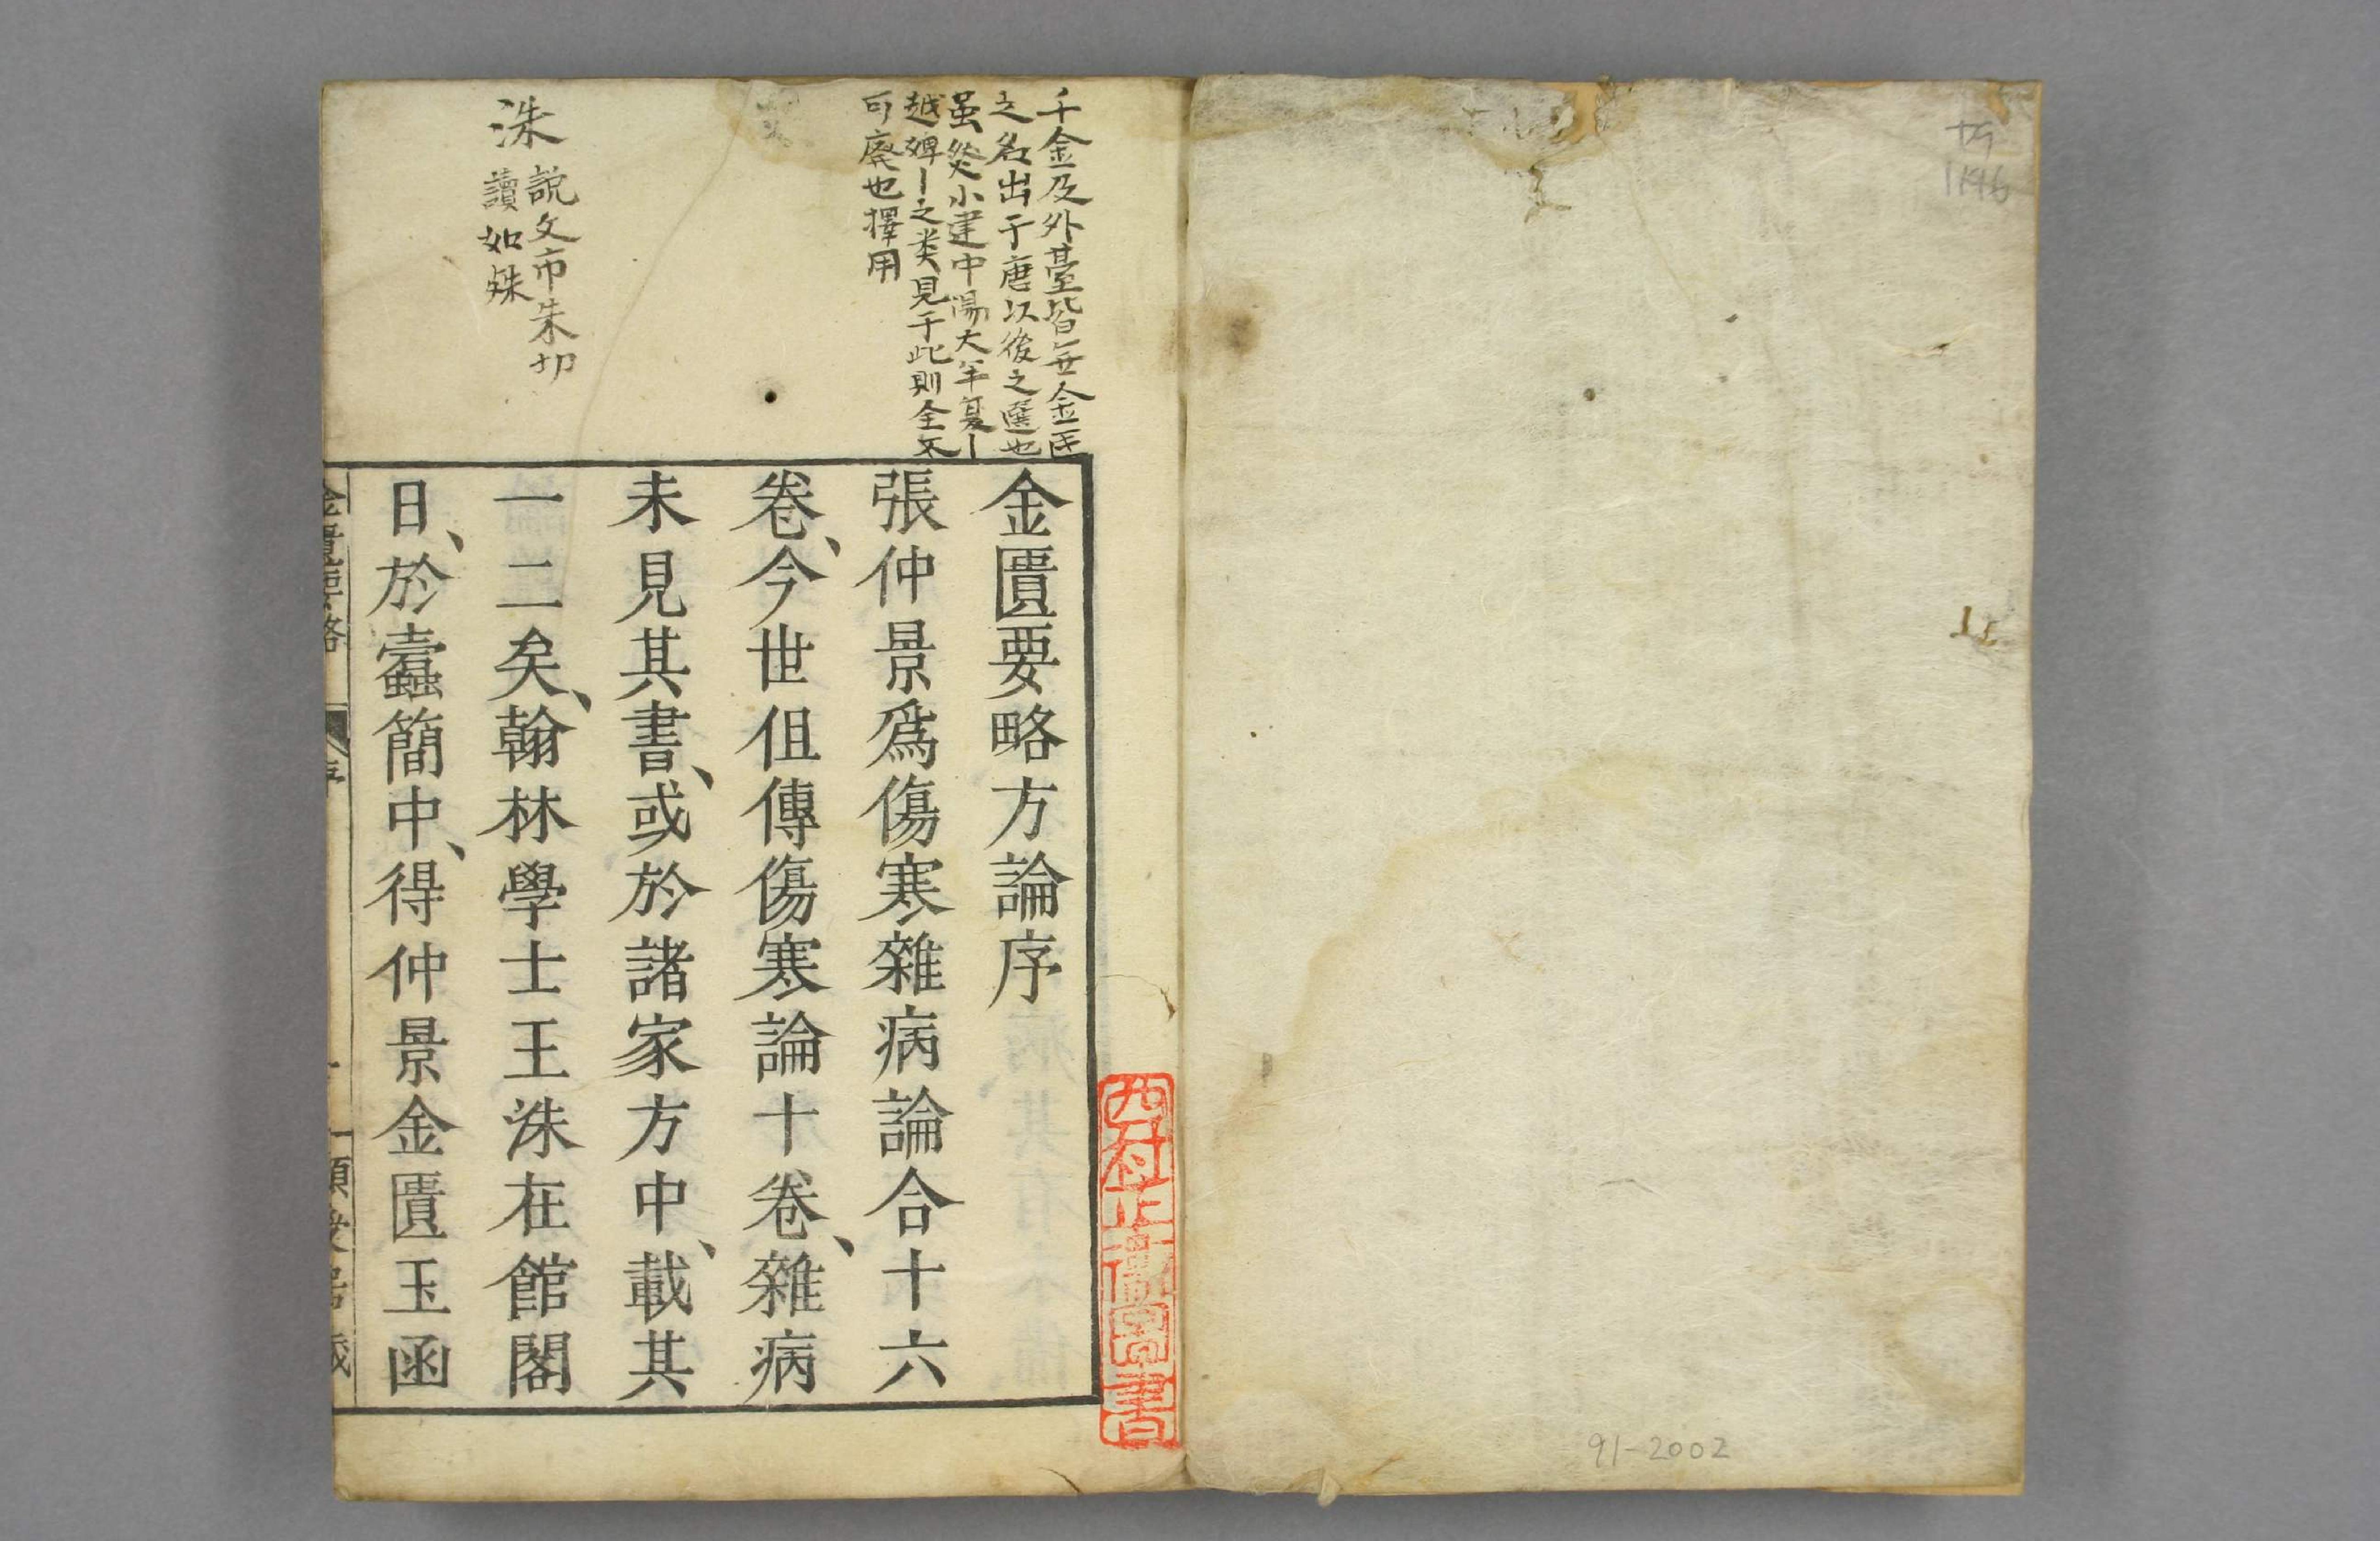 千金及外臺皆無金匱
之名出于唐以後之選也
虽然小建中湯大半夏｜
越婢｜之类見于此則全不
可廢也擇用
洙 說文市朱切
讀如殊
金匱要略方論序
張仲景爲傷寒雜病論合十六
卷、今世但傳傷寒論十卷、雜病
未見其書、或於諸家方中、載其
一二矣、翰林學士王洙在館閣
日、於蠹簡中、得仲景金匱玉函
金匱要略 序
西村 圖書
91-2002